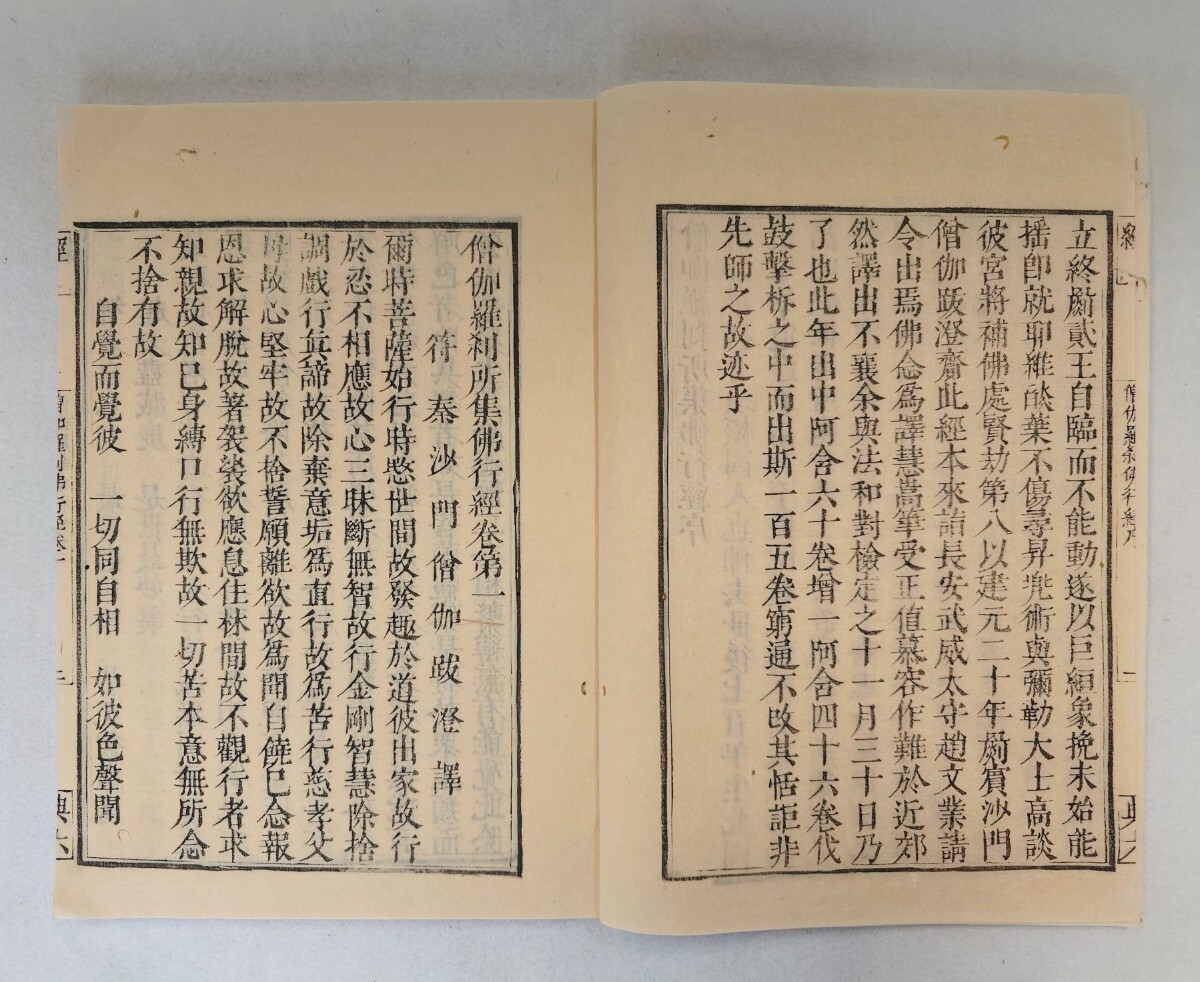 立終罽貳王自臨而不能動遂以巨絙象挽未始能
搖卽就耶維酸葉不傷尋昇兜術與彌勒大士高談
彼宮將補佛處賢劫第八以建元二十年罽賓沙門
僧伽跋澄齎此經本來詣長安武威太守趙文業請
令出焉佛念爲譯慧嵩筆受正值慕容作難於近郊
然譯出不襄余與法和對檢定之十一月三十日乃
了也此年出中阿含六十卷增一阿含四十六卷伐
鼓擊柝之中而出斯一百五卷窮通不改其恬詎非
先師之故迹乎
僧伽羅刹所集佛行經卷第一
符秦沙門僧伽跋澄譯
爾時菩薩始行時愍世間故發趣於道彼出家故行
於忍不相應故心三昧斷無智故行金剛智慧除捨
調戲行眞諦故除棄意垢爲直行故爲苦行慈孝父
母故心堅牢故不捨誓願離欲故爲聞自饒已念報
恩求解脫故著袈裟欲應息住林閒故不觀行者求
知親故知已身縛口行無欺故一切苦本意無所念
不捨有故
自覺而覺彼　一切同自相　如彼色聲聞
典六